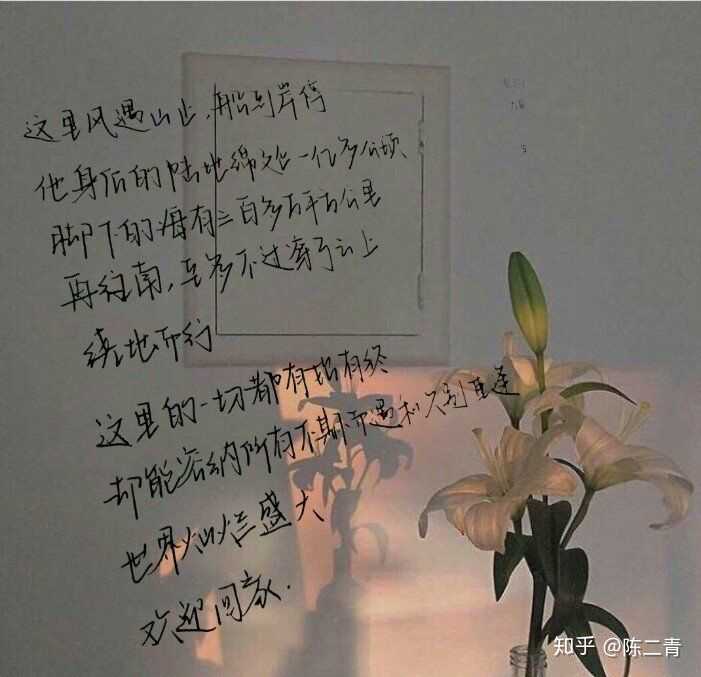 这里风遇山止，船到岸停
他身后的陆地绵延一亿多公顷
脚下的海有三百多万平方公里
再往南，至多不过云上
绕地而行
这里的一切都有始有终
却能容纳所有不期而遇和久别重逢
世界灿烂盛大
欢迎回家.
知乎 @陈二青